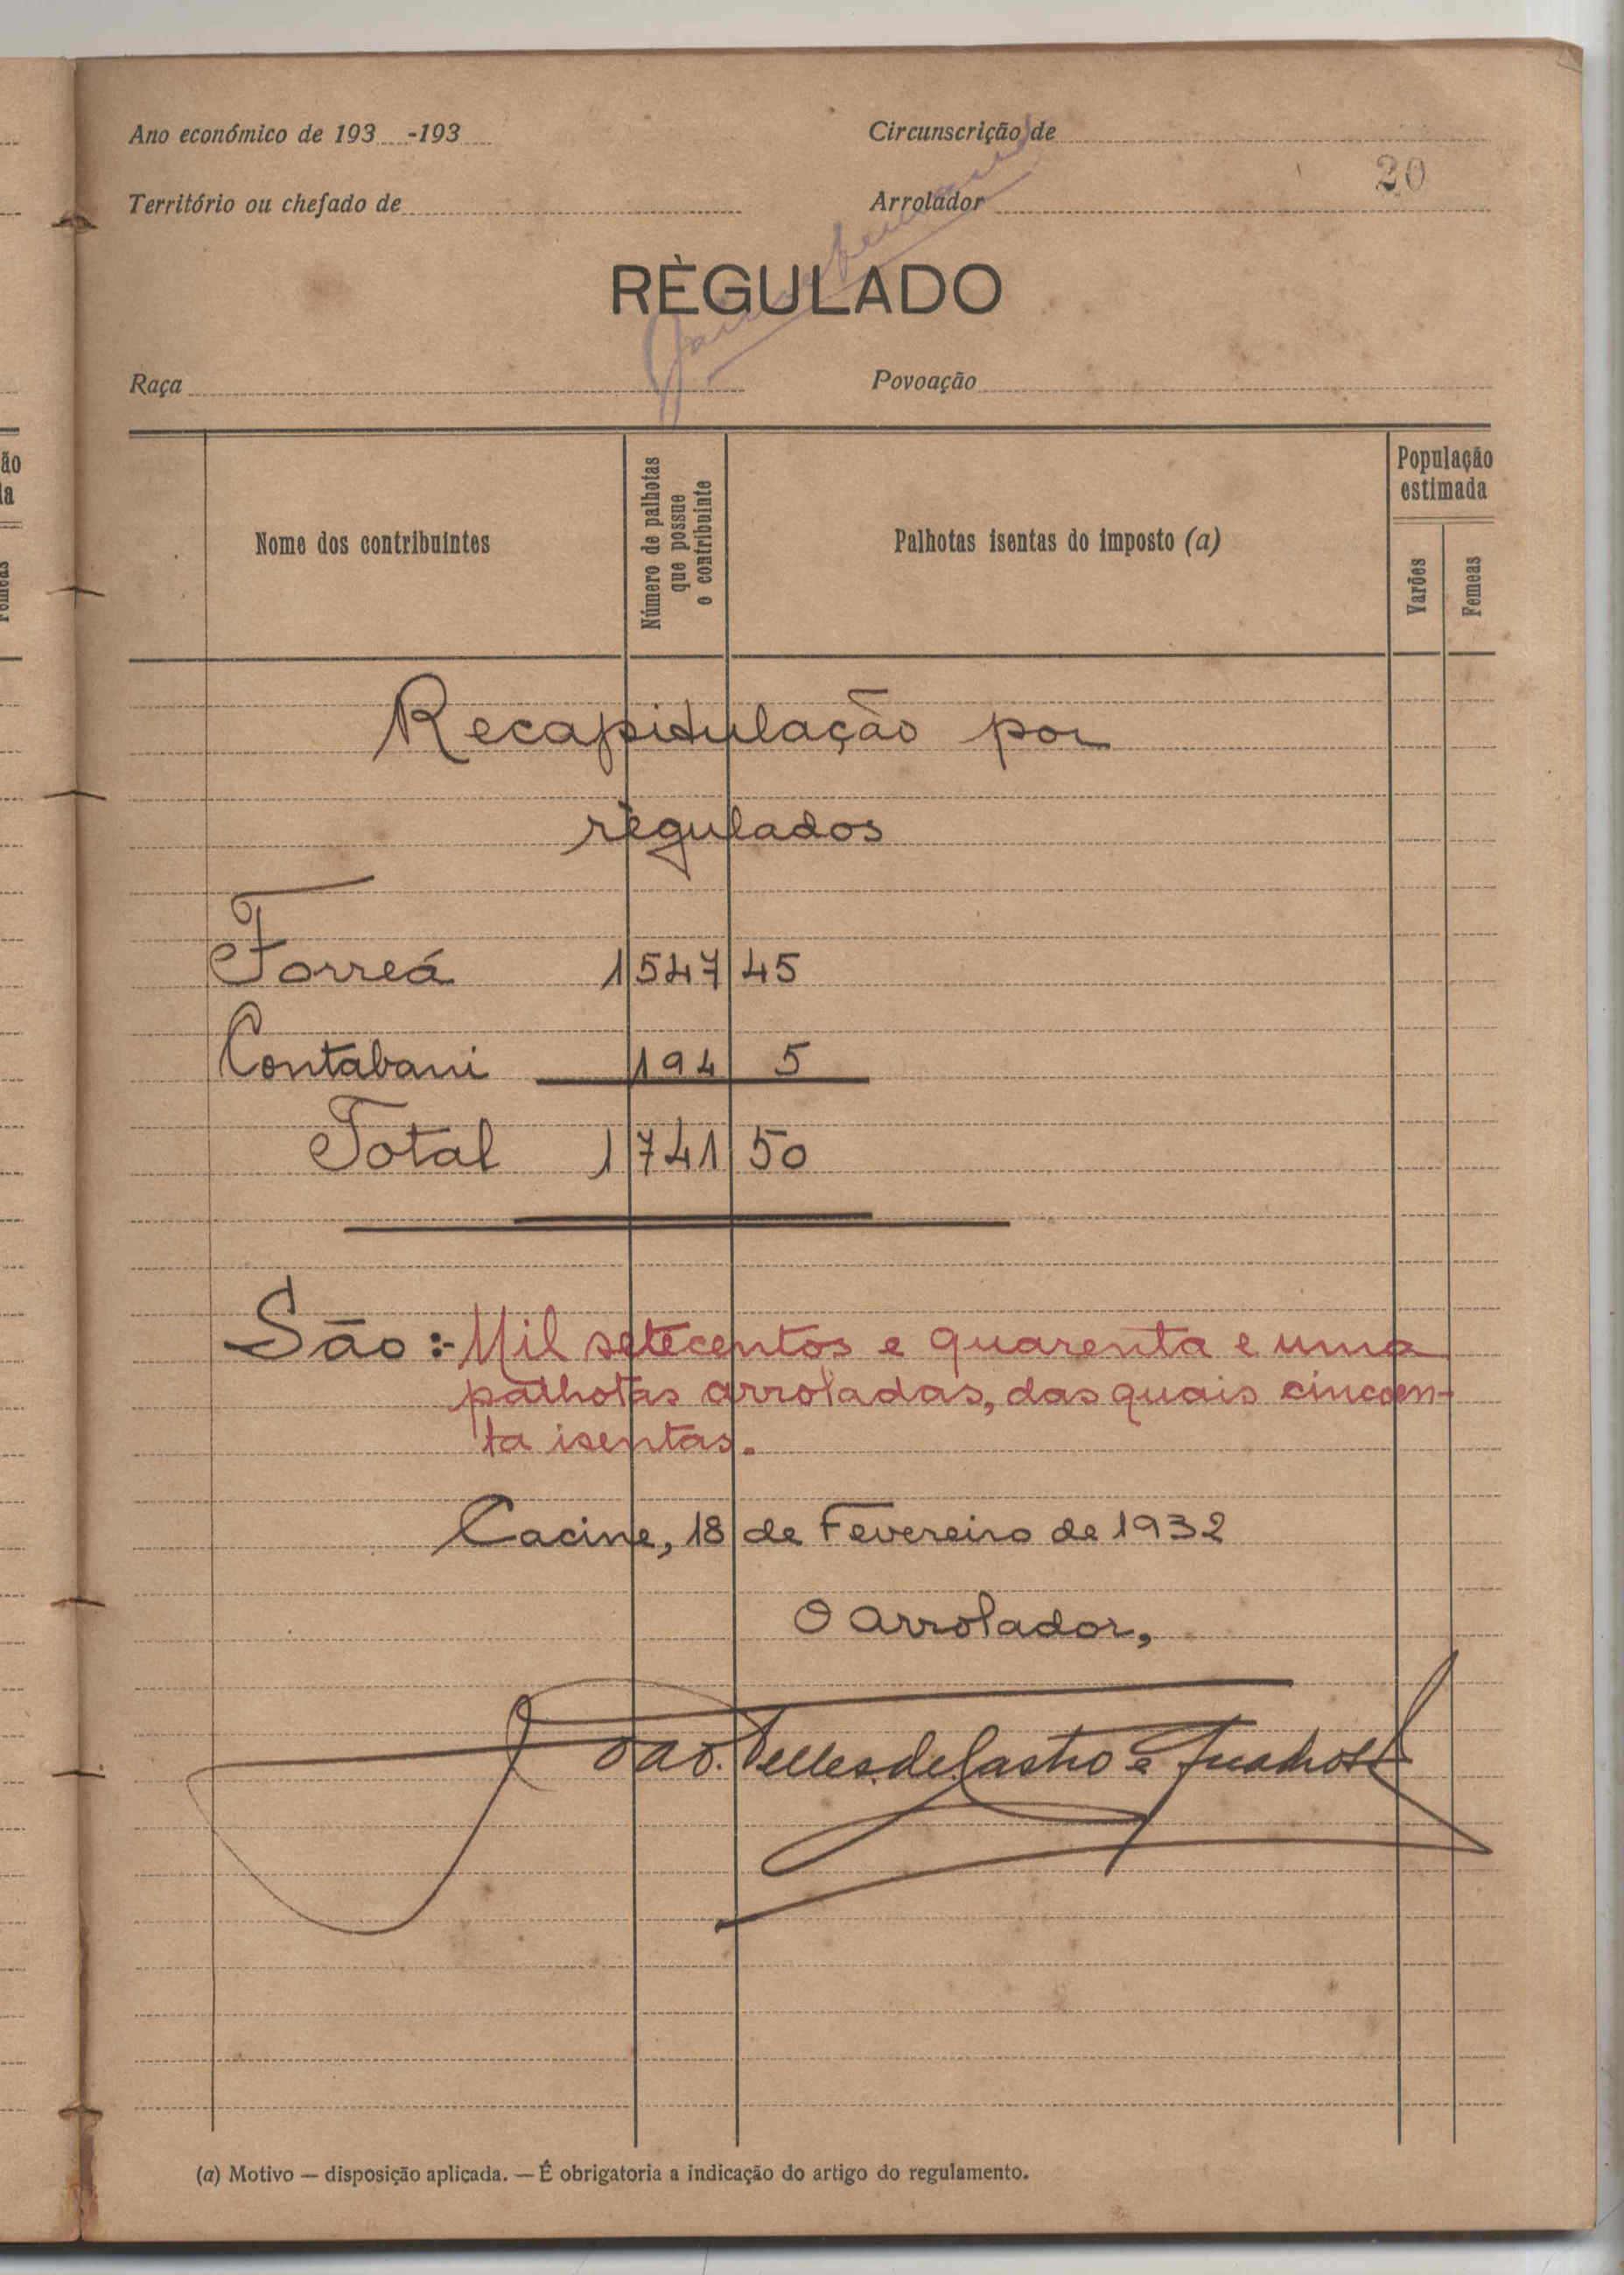 Ano económico de 193 -193
Circunscrição de
20
Território ou chefado de
Arrolador
RÈGULADO
Raça
Povoação
Nome dos contribuintes
Número de palhotas
que possue
o contribuinte
Palhotas isentas do imposto (a)
População
estimada
Varões
Femeas
Recapitulação por
règulados
Forreá 1547 45
Contabani 194 5
Total 1741 50
São :- Mil setecentos e quarenta e uma
palhotas arroladas, das quais cincoen-
ta isentas.
Cacine, 18 de Fevereiro de 1932
O arrolador,
João Telles de Castro e
(a) Motivo — disposição aplicada. — É obrigatoria a indicação do artigo do regulamento.